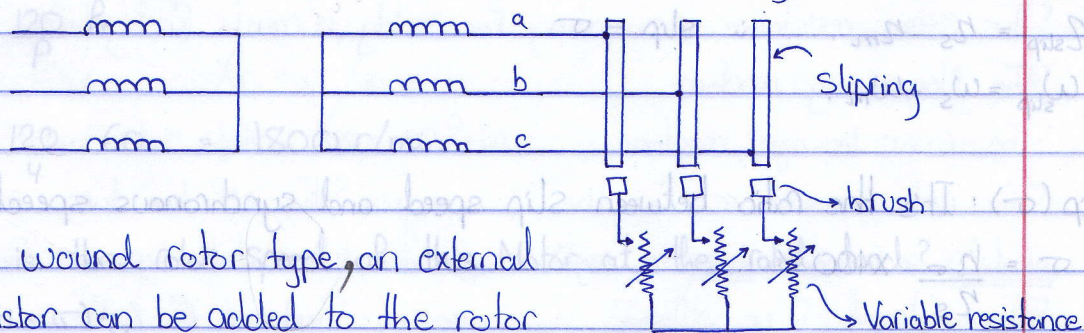 a
b
slipring
c
brush
wound rotor type, an external
stor can be added to the rotor
Variable resistance